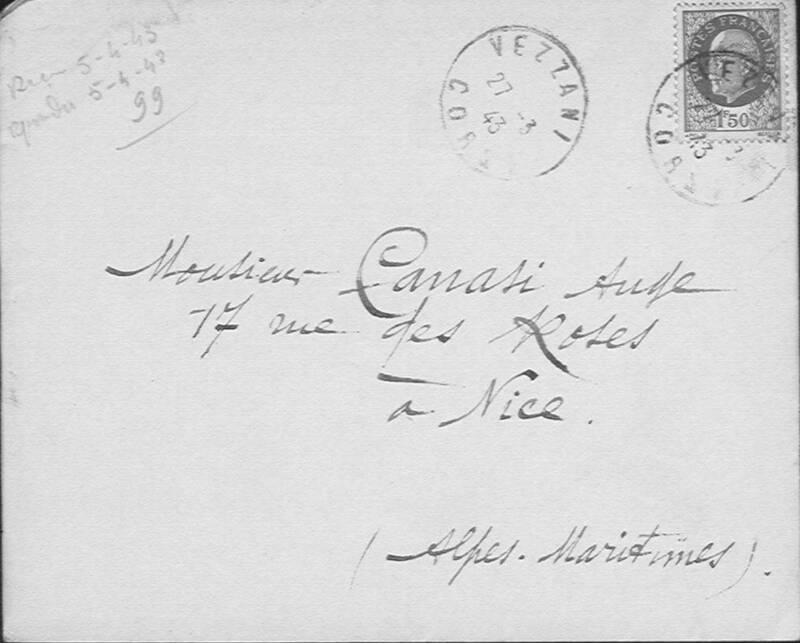 Reçu 5-4-43
répondu 5-4-43
99
VEZZANI
27 -3
43
CORSE
POSTES FRANÇAISES
1F50
VEZ
43
CO
Monsieur Canasi Ange
17 rue des Roses
à Nice.
(Alpes-Maritimes).